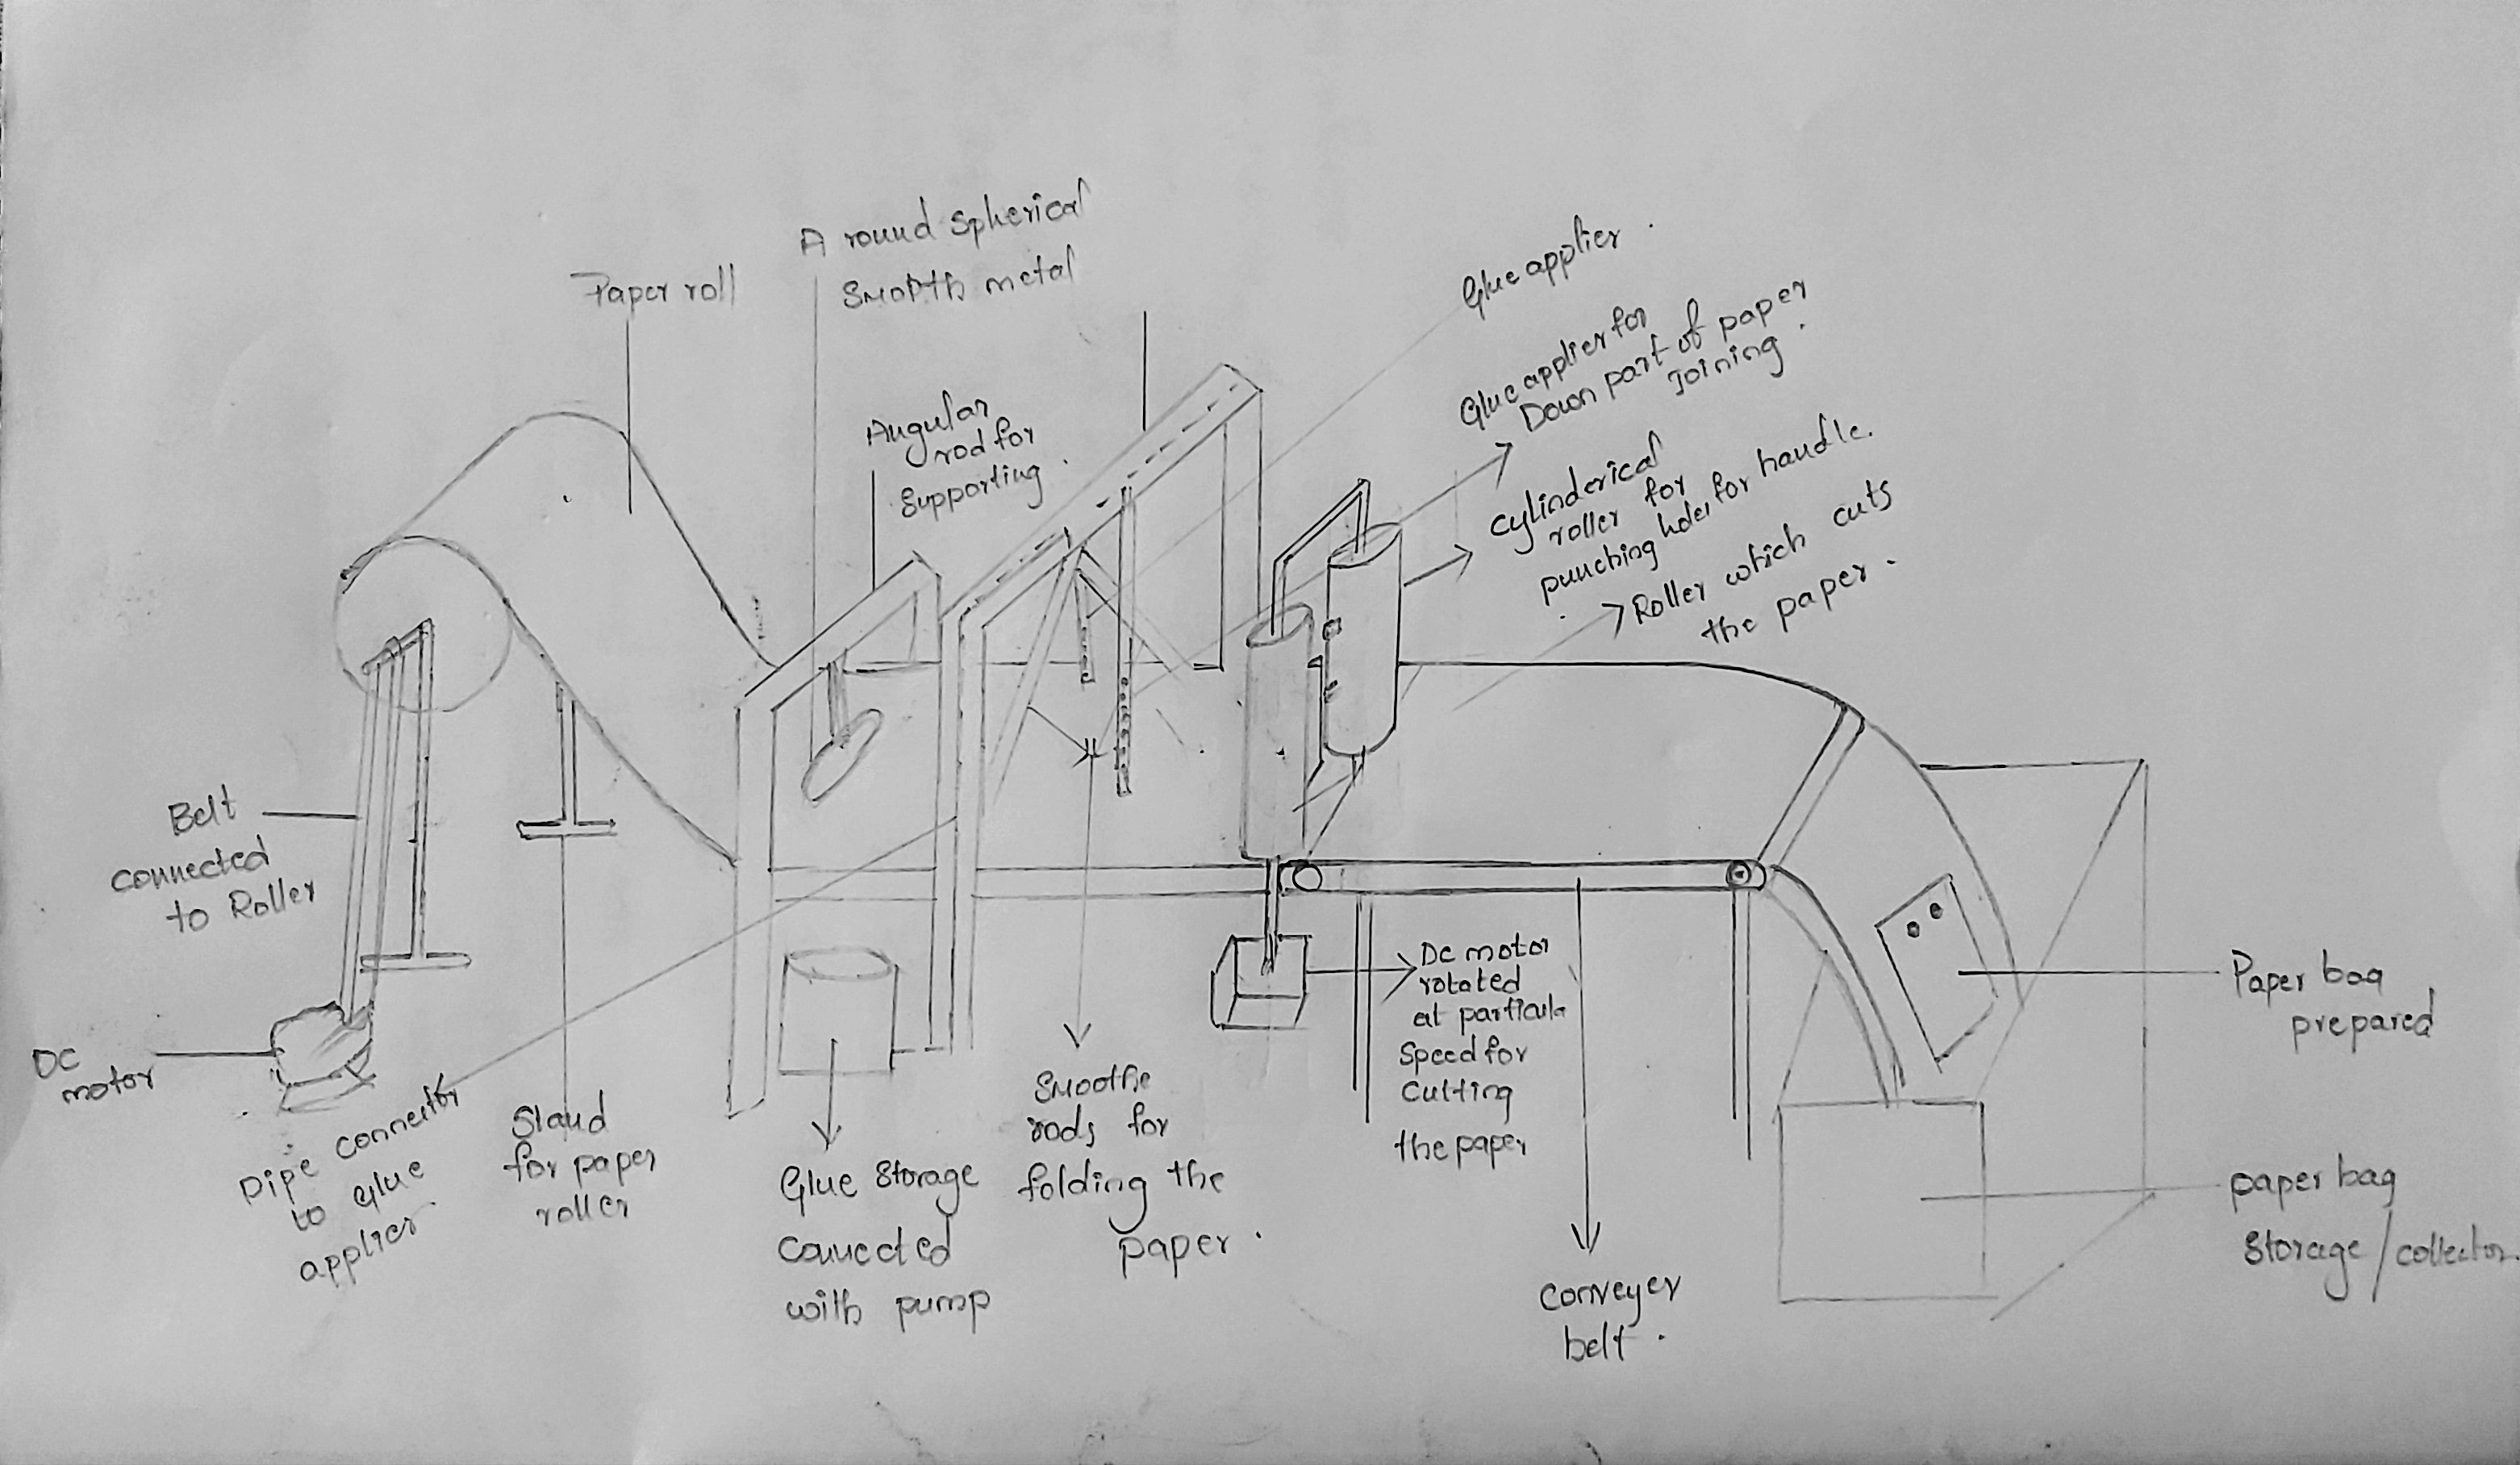 A round Spherical
Smooth metal
Paper roll
Angular
rod for
Supporting.
Glue applier.
Glue applier for
Down part of paper
Joining.
Cylinderical
roller for
punching holes for handle.
Roller which cuts
the paper.
Belt
connected
to Roller
DC
motor
Pipe connector
to glue
applier.
Stand
for paper
roller
Glue Storage
Connected
with pump
Smoothe
rods for
folding the
paper.
DC motor
rotated
at particula
Speed for
Cutting
the paper
Conveyer
belt.
Paper bag
prepared
paper bag
Storage/collector.